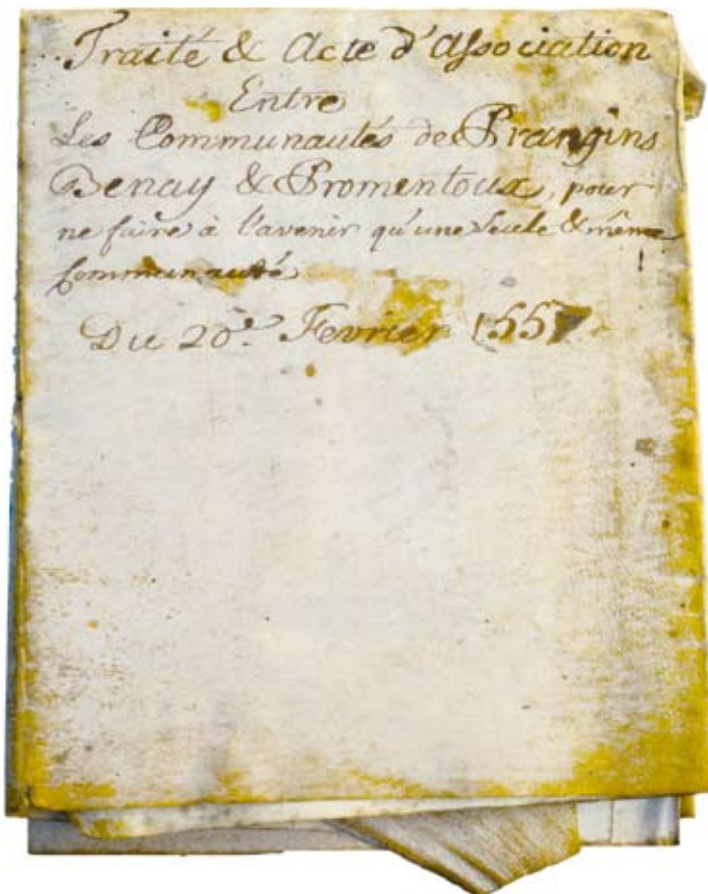 Traité & Acte d'Association
Entre
Les Communautés de Prangins
Benay & Promentoux, pour
ne faire à l'avenir qu'une seule & même
Communauté.
Du 20.e Fevrier 1557